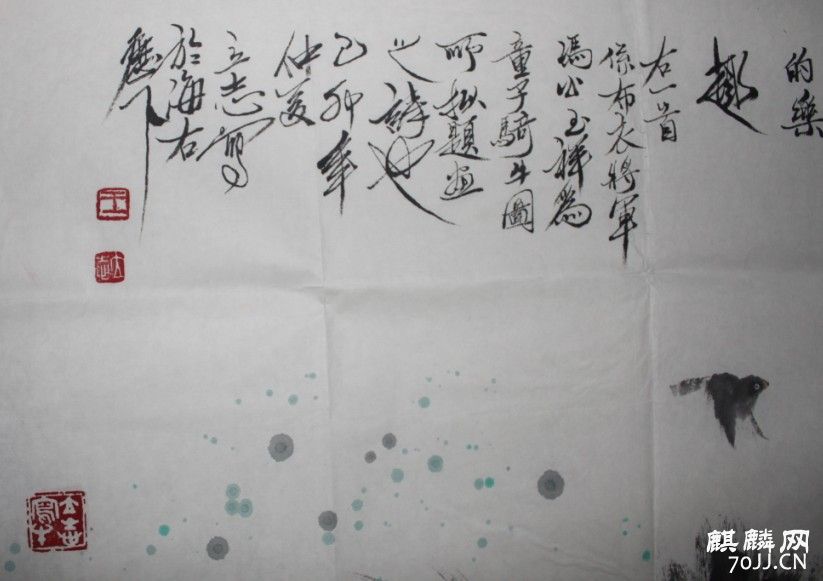 的樂
趣
右一首
係布衣將軍
馮公玉祥為
童子騎牛圖
所擬題畫
之詩也
己卯年
仲夏
立志寫
於海右
歷下
麒麟网
70JJ.CN